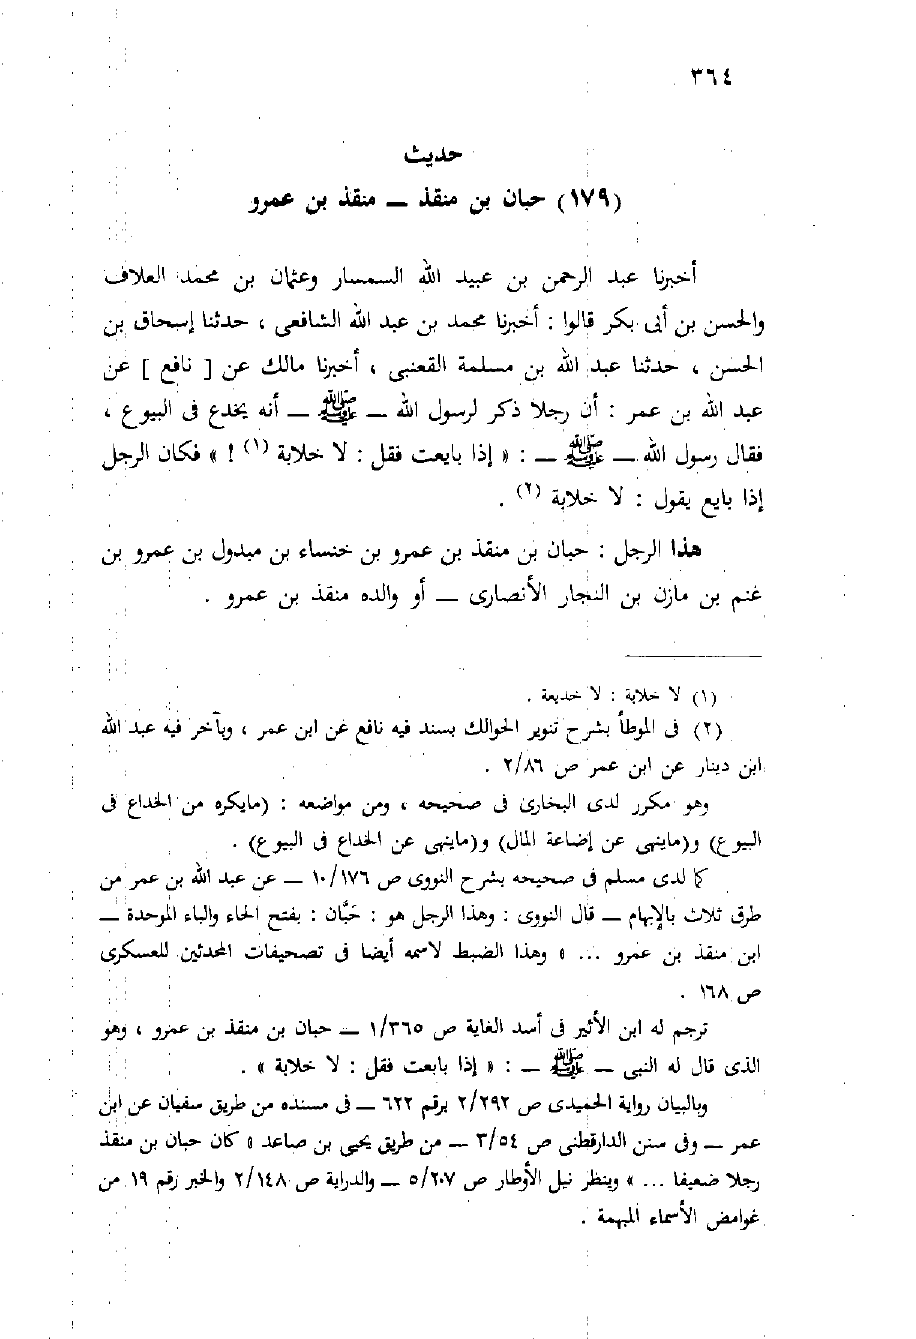 ٣٦٤
حديث
(١٧٩) حبان بن منقذ — منقذ بن عمرو
أخبرنا عبد الرحمن بن عبيد الله السمسار وعثمان بن محمد العلاف
والحسن بن أبى بكر قالوا : أخبرنا محمد بن عبد الله الشافعى ، حدثنا إسحاق بن
الحسن ، حدثنا عبد الله بن مسلمة القعنبى ، أخبرنا مالك عن [ نافع ] عن
عبد الله بن عمر : أن رجلا ذكر لرسول الله — ﷺ — أنه يخدع فى البيوع ،
فقال رسول الله — ﷺ — : « إذا بايعت فقل : لا خلابة (١) ! » فكان الرجل
إذا بايع يقول : لا خلابة (٢) .
هذا الرجل : حبان بن منقذ بن عمرو بن خنساء بن مبدول بن عمرو بن
غنم بن مازن بن النجار الأنصارى — أو والده منقذ بن عمرو .
(١) لا خلابة : لا خديعة .
(٢) فى الموطأ بشرح تنوير الحوالك بسند فيه نافع عن ابن عمر ، وبآخر فيه عبد الله
ابن دينار عن ابن عمر ص ٢/٨٦ .
وهو مكرر لدى البخارى فى صحيحه ، ومن مواضعه : (مايكره من الخداع فى
البيوع) و(ماينهى عن إضاعة المال) و(ماينهى عن الخداع فى البيوع) .
كما لدى مسلم فى صحيحه بشرح النووى ص ١٠/١٧٦ — عن عبد الله بن عمر من
طرق ثلاث بالإبهام — قال النووى : وهذا الرجل هو : حَبَّان : بفتح الحاء والباء الموحدة —
ابن منقذ بن عمرو ... » وهذا الضبط لاسمه أيضا فى تصحيفات المحدثين للعسكرى
ص ١٦٨ .
ترجم له ابن الأثير فى أسد الغابة ص ١/٣٦٥ — حبان بن منقذ بن عمرو ، وهو
الذى قال له النبى — ﷺ — : « إذا بايعت فقل : لا خلابة » .
وبالبيان رواية الحميدى ص ٢/٢٩٢ برقم ٦٢٢ — فى مسنده من طريق سفيان عن ابن
عمر — وفى سنن الدارقطنى ص ٣/٥٤ — من طريق يحيى بن صاعد « كان حبان بن منقذ
رجلا ضعيفا ... » وينظر نيل الأوطار ص ٥/٢٠٧ — والدراية ص ٢/١٤٨ والخبر رقم ١٩ من
غوامض الأسماء المبهمة .